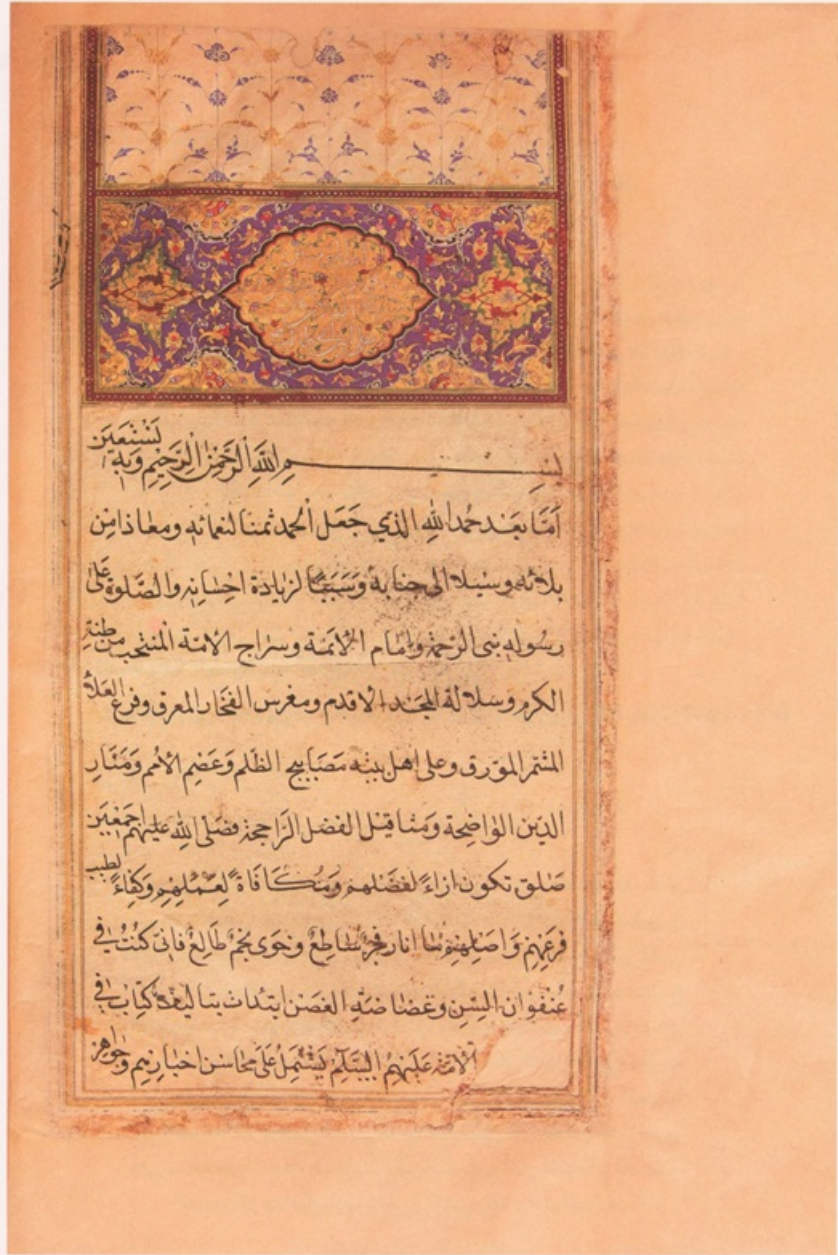 بسم الله الرحمن الرحيم وبه نستعين
أما بعد حمد الله الذي جعل الحمد ثمنا لنعمائه ومعاذا من
بلائه وسبيلا الى جنابه وسببا لزيادة احسانه والصلوة على
رسوله نبى الرحمة وامام الائمة وسراج الامة المنتخب من طينة
الكرم وسلالة المجد الاقدم ومغرس الفخار المعرق وفرع العلاء
المثمر المورق وعلى اهل بيته مصابيح الظلم وعصم الامم ومنار
الدين الواضحة ومثاقيل الفضل الراجحة فصلى الله عليهم اجمعين
صلوة تكون ازاءً لفضلهم ومكافاةً لعملهم وكفاءً لطيب
فرعهم واصلهم ما انار فجرٌ ساطعٌ وخوى نجمٌ طالعٌ فانى كنت في
عنفوان السن وغضاضة الغصن ابتدات بتاليف كتاب في
الائمة عليهم السلم يشتمل على محاسن اخبارهم وجواهر